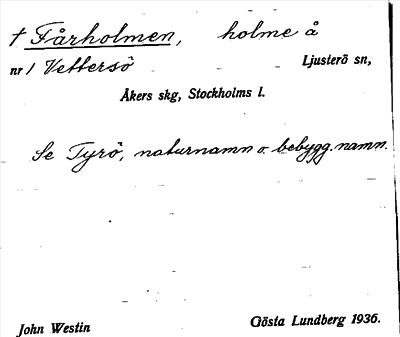 † Fårholmen, holme å
nr 1 Vettersö Ljusterö sn,
Åkers skg, Stockholms l.
Se Tyrö, naturnamn o. bebygg.namn.
John Westin Gösta Lundberg 1936.